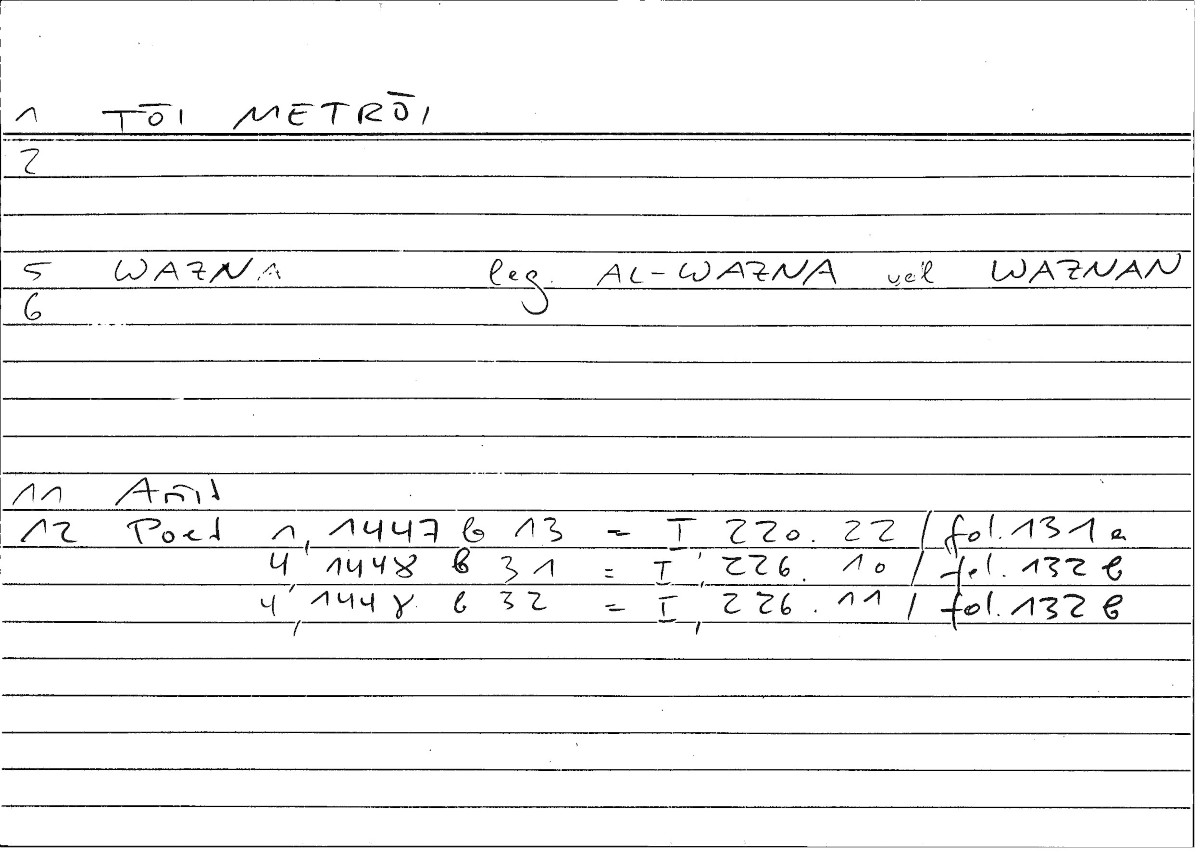 1 TŌI METRŌI
2
5 WAZNA leg. AL-WAZNA vel WAZNAN
6
11
12 Poet 1, 1447 b 13 = I 220. 22 / fol. 131 a
4, 1448 b 31 = I, 226. 10 / fol. 132 b
4, 1448 b 32 = I, 226. 11 / fol. 132 b